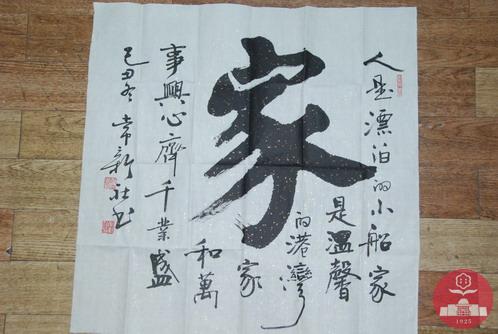 家
人是漂泊的小船家
是溫馨
的港灣
家
和萬
事興心齊千業盛
己丑冬 常新社书
1925